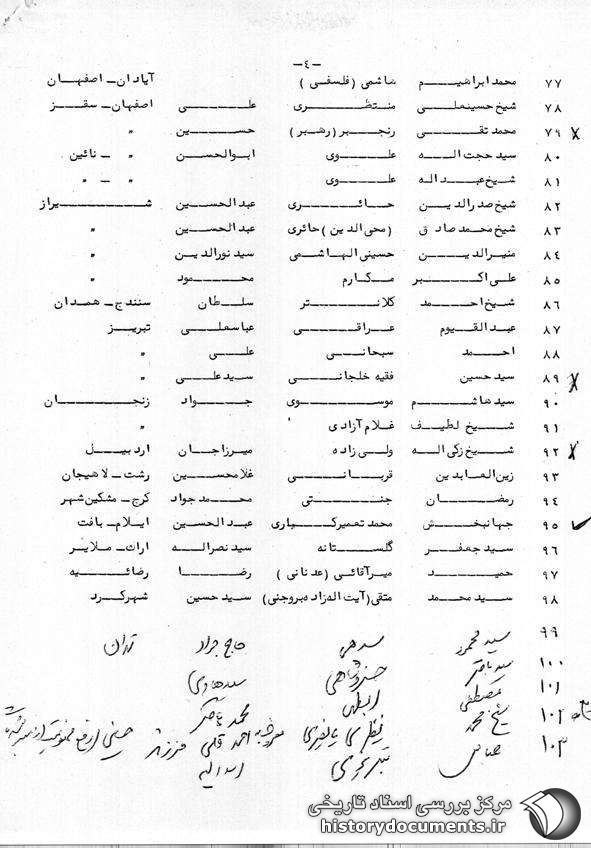 -٤-
٧٧ محمد ابراهیم هاشمی (فلسفی) آبادان - اصفهان
٧٨ شیخ حسینعلی منتظری علی اصفهان - سقز
٧٩ محمد تقی رنجبر (رهبر) حسین "
٨٠ سید حجت اله علوی ابوالحسن " - نائین
٨١ شیخ عبداله علوی " - "
٨٢ شیخ صدرالدین حائری عبدالحسین شیراز
٨٣ شیخ محمد صادق (محی الدین) حائری عبدالحسین "
٨٤ منیرالدین حسینی الهاشمی سید نورالدین "
٨٥ علی اکبر مکارم محمود "
٨٦ شیخ احمد کلانتر سلطان سنندج - همدان
٨٧ عبدالقیوم عراقی عباسعلی تبریز
٨٨ احمد سبحانی علی "
٨٩ سید حسین فقیه خلجانی سید علی "
٩٠ سید هاشم موسوی جواد زنجان
٩١ شیخ لطیف غلام آزادی "
٩٢ شیخ زکی اله ولی زاده میرزاجان اردبیل
٩٣ زین العابدین قربانی غلامحسین رشت - لاهیجان
٩٤ رمضان جنتی محمد جواد کرج - مشکین شهر
٩٥ جهانبخش محمد تعمیرکیاری عبدالحسین ایلام - بافت
٩٦ سید جعفر گلستانه سید نصراله اراک - ملایر
٩٧ حمید میرآقائی (عدنانی) رضا رضائیه
٩٨ سید محمد متقی (آیت اله زاده بروجنی) سید حسین شهرکرد
٩٩ سید محمود حاج جواد تهران
١٠٠ خسروشاهی سید هادی
١٠١ مصطفی
١٠٢ شیخ محمد
١٠٣ عباس تبریزی اسداله
مرکز بررسی اسناد تاریخی
historydocuments.ir